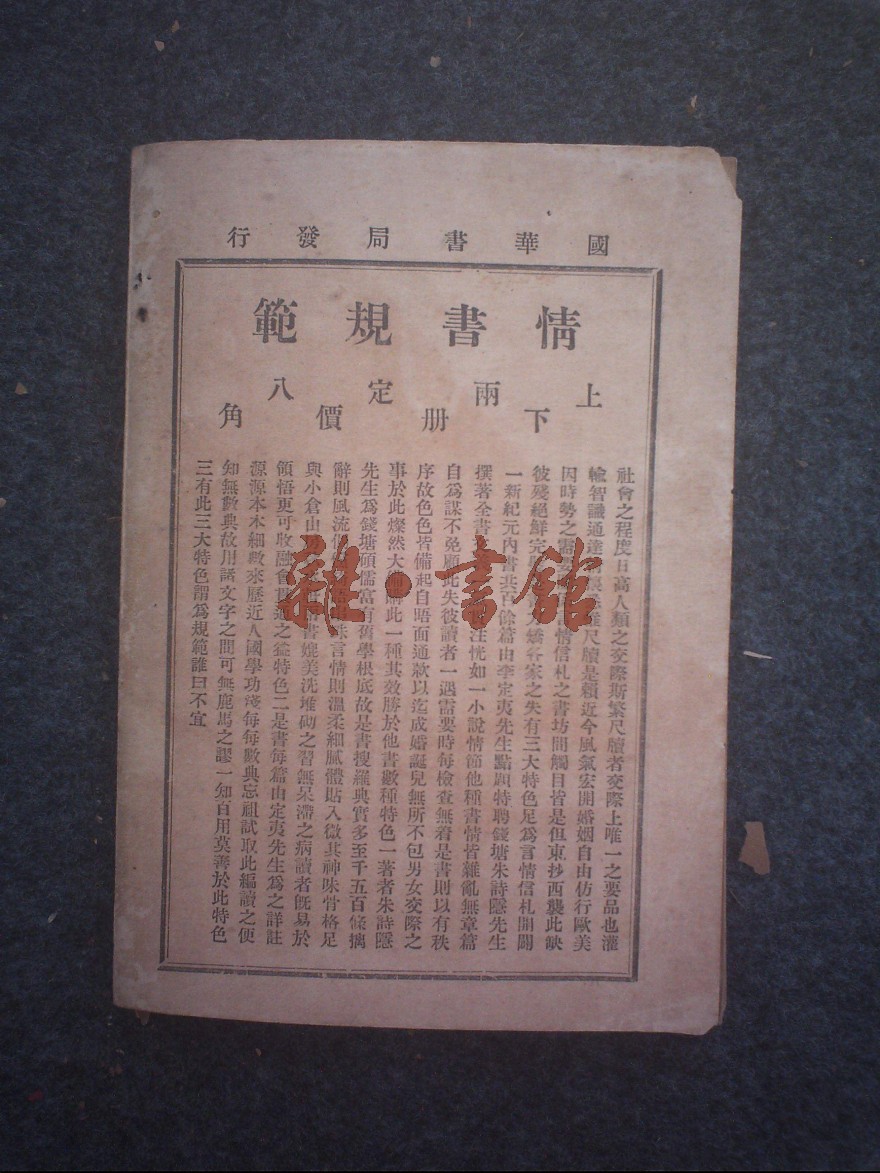 國華書局發行
情書規範
上下兩册定價八角
社會之程度日高人類之交際斯繁尺牘者交際上唯一之要品也灌
輸智識通達尺牘是賴近今風氣宏開婚姻自由仿行歐美
因時勢之需情信札之書坊間觸目皆是但東抄西襲此缺
彼殘絕鮮完矯各家之失有三大特色足爲言情信札開闢
一新紀元內書共百餘篇由李定夷先生點題特聘錢塘朱詩隱先生
撰著全書注恍如一小說情節他種書情皆雜亂無章篇
自爲謀不免顧此失彼讀者一遇需要時每檢查無着是書則以有秩
序故色色皆備起自晤面通款以迄成婚誕兒無所不包男女交際之
事於此燦然大備購此一種其效勝於他書數種特色一著者朱詩隱
先生爲錢塘碩儒富有舊學根底故是書搜羅典實多至千五百條摛
辭則風流言情則溫柔細膩體貼入微其神味骨格足
與小倉山書媲美洗堆砌之習無呆滯之病讀者既易於
領悟更可收融會貫通之益特色二是書每篇由定夷先生爲之詳註
源源本本細數來歷近人國學功淺每每數典忘祖試取此編讀之便
知無數典故用話文字之間可無鹿馬之謬一知百用莫善於此特色
三有此三大特色謂爲規範誰曰不宜
雜·書館